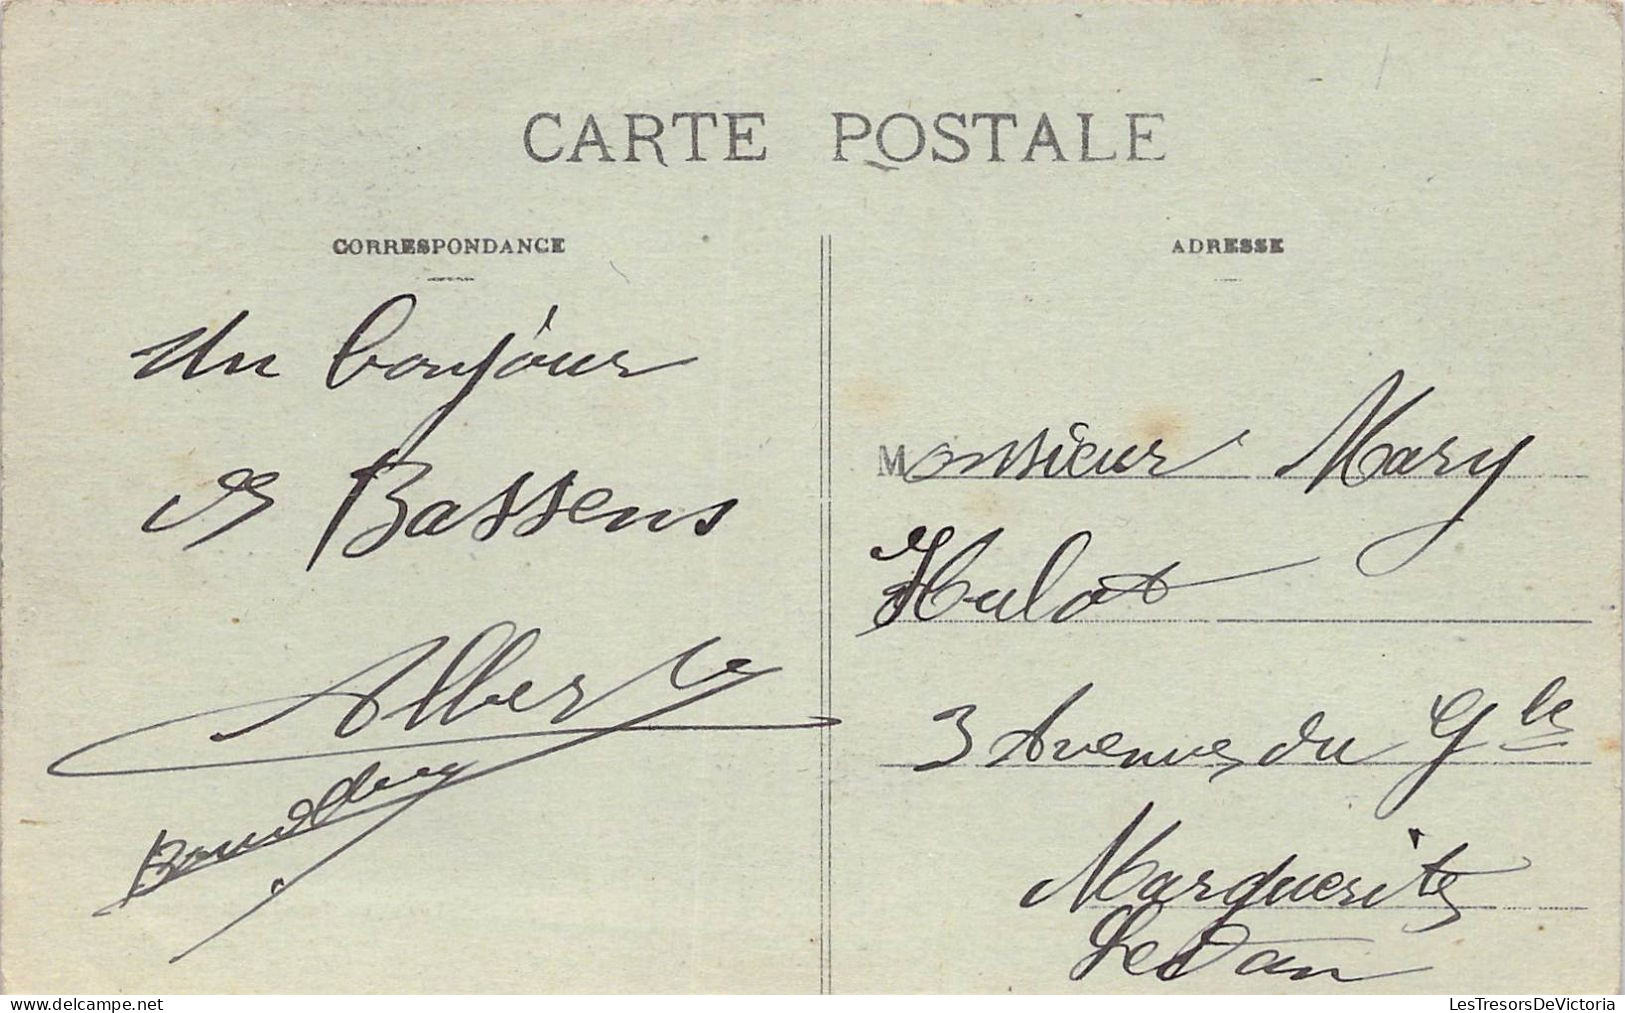 CARTE POSTALE
CORRESPONDANCE
Un bonjour
de Bassens
Albert
ADRESSE
Monsieur Mary
Hulot
3 Avenue du Gle
Marguerite
Sedan
LesTresorsDeVictoria